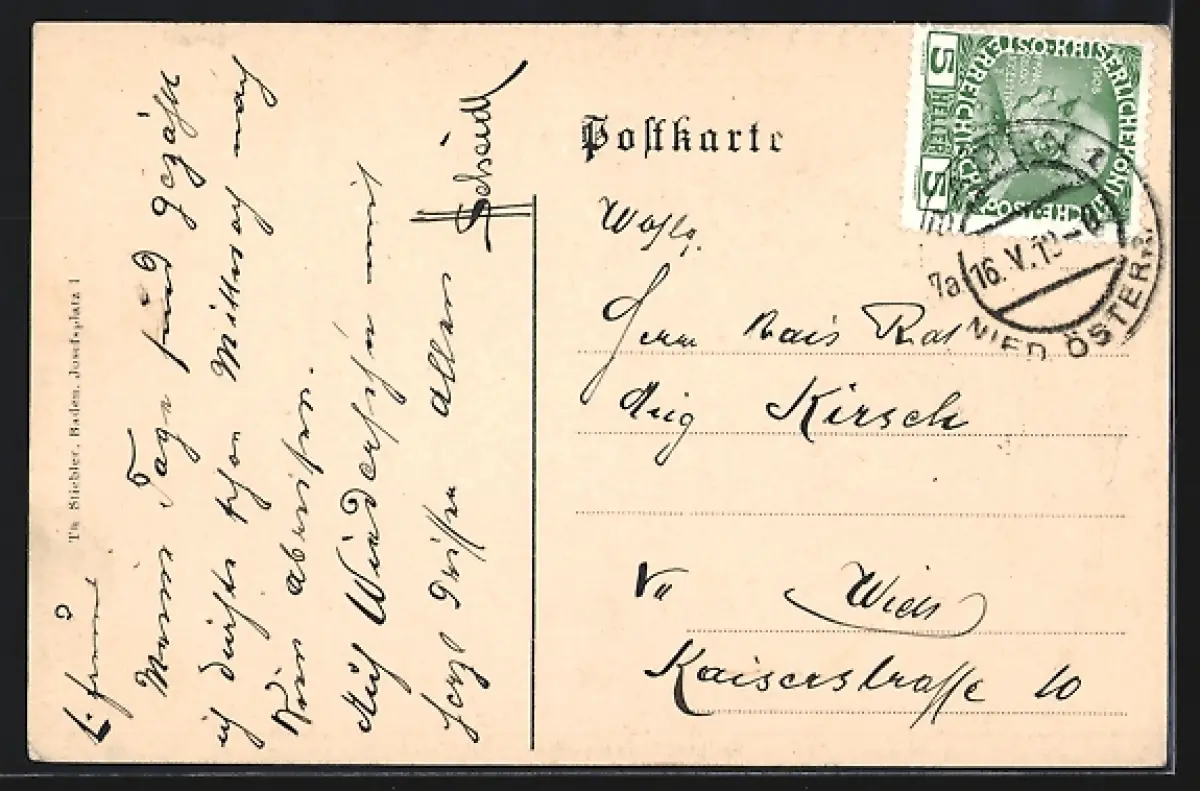 L. Freund
Meine Tage sind gezählt
ich dürfte schon Mittwoch nach
Wien abreisen.
Auf Wiedersehen mit
herzl Grüßen allen
Scheidl
Th. Stiebler, Baden, Josefsplatz 1
Postkarte
5 HELLER 5
KAISERLICHE KÖNIGLICHE ÖSTERREICHISCHE POST
1908
7a 16.V.
NIED. ÖSTERR.
Wohlg.
Herrn Kais Rat
Aug Kirsch
Wien
Kaiserstrasse 10